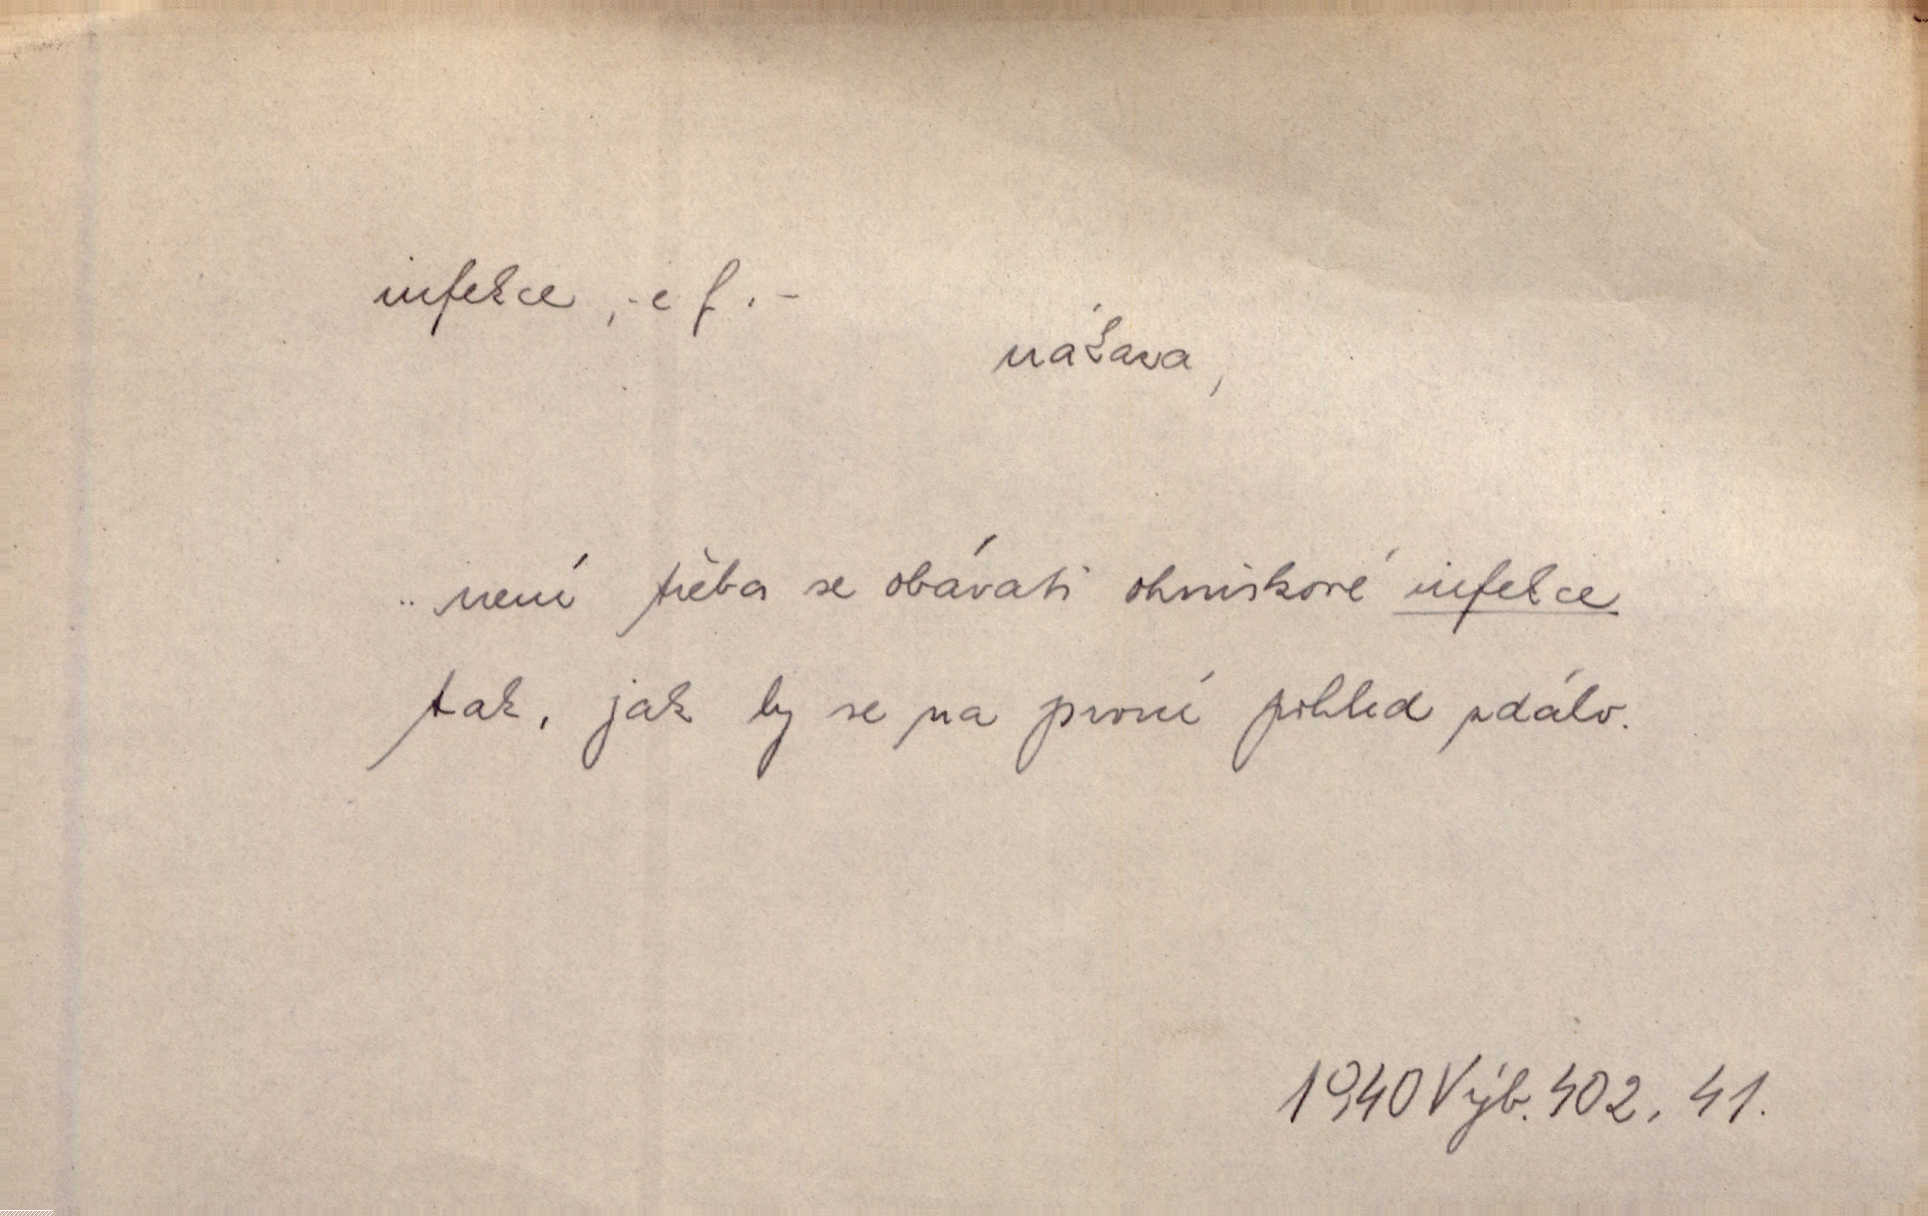 infekce, -e f. -
nákaza,
.. není třeba se obávati ohniskové infekce
tak, jak by se na první pohled zdálo.
1940 Výb. 402, 41.